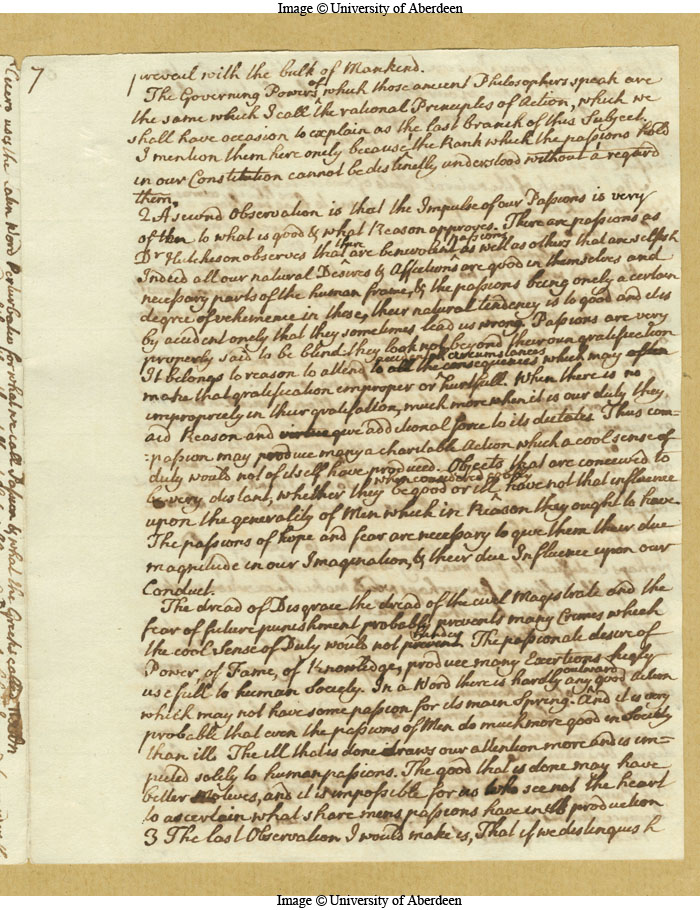 Image © University of Aberdeen
7
prevail with the bulk of Mankind.
The Governing Powers of which those ancient Philosophers speak are
the same which I call the rational Principles of Action, which we
shall have occasion to explain as the last branch of this Subject,
I mention them here onely because the Rank which the passions hold
in our Constitution cannot be distinctly understood without a regard
them.
2 A second Observation is that the Impulse of our Passions is very
often to what is good & what Reason approves. There are passions as
Dr Hutcheson observes that are benevolent as well as others that are selfish
Indeed all our natural Desires & Affections are good in themselves and
necessary parts of the human frame, & the passions being onely a certain
degree of vehemence in these, their natural tendency is to good and it is
by accident onely that they sometimes lead us wrong. Passions are very
properly said to be blind. they look not beyond their own gratification
It belongs to reason to attend to all the consequences circumstances which may often
make that gratification improper or hurtfull. When there is no
impropriety in their gratification, much more when it is our duty they
aid Reason and virtue give additional force to its dictates. Thus com-
=passion may produce many a charitable Action which a cool sense of
duty would not of itself have produced. Objects that are conceived to
be very distant, whether they be good or ill when considered have not that influence
upon the generality of Men which in Reason they ought to have.
The passions of hope and fear are necessary to give them their due
magnitude in our Imagination, & their due Influence upon our
Conduct.
The dread of Disgrace the dread of the civil Magistrate and the
fear of future punishment probably prevents many Crimes which
the cool sense of Duty would not prevent. The passionate desire of
Power, of Fame, of Knowledge, produce many Exertions highly
usefull to human Society. In a Word there is hardly any good outward action
which may not have some passion for its main Spring. And it is very
probable that even the passions of Men do much more good in Society
than ill. The ill that is done draws our attention more and is im-
puted solely to human passions. The good that is done may have
better Motives, and it is impossible for us who see not the heart
to ascertain what share mens passions have in its production
3 The last Observation I would make is, That if we distinguish
Cicero uses the Latin Word Perturbatio for what we call Passion & what the Greeks called
Image © University of Aberdeen